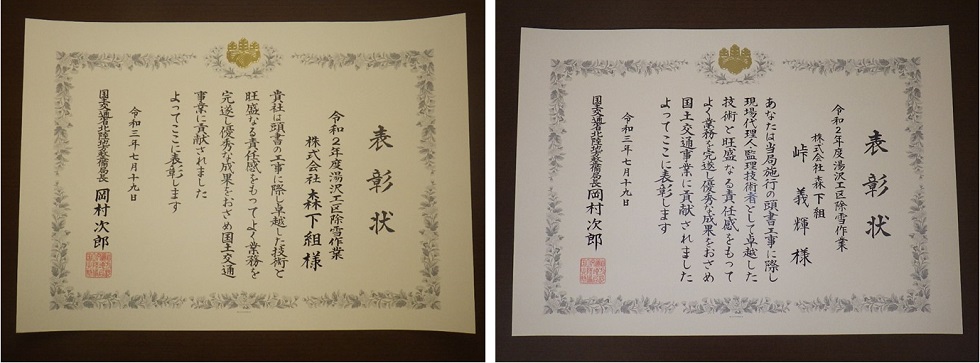 表彰状
令和２年度湯沢工区除雪作業
株式会社 森下組 様
貴社は頭書の工事に際し卓越した技術と
旺盛なる責任感をもってよく業務を
完遂し優秀な成果をおさめ国土交通
事業に貢献されました
よってここに表彰します
令和三年七月十九日
国土交通省北陸地方整備局長 岡村次郎
表彰状
令和２年度湯沢工区除雪作業
株式会社森下組
峠 義輝 様
あなたは当局施行の頭書工事に際し
現場代理人監理技術者として卓越した
技術と旺盛なる責任感をもって
よく業務を完遂し優秀な成果をおさめ
国土交通事業に貢献されました
よってここに表彰します
令和三年七月十九日
国土交通省北陸地方整備局長 岡村次郎